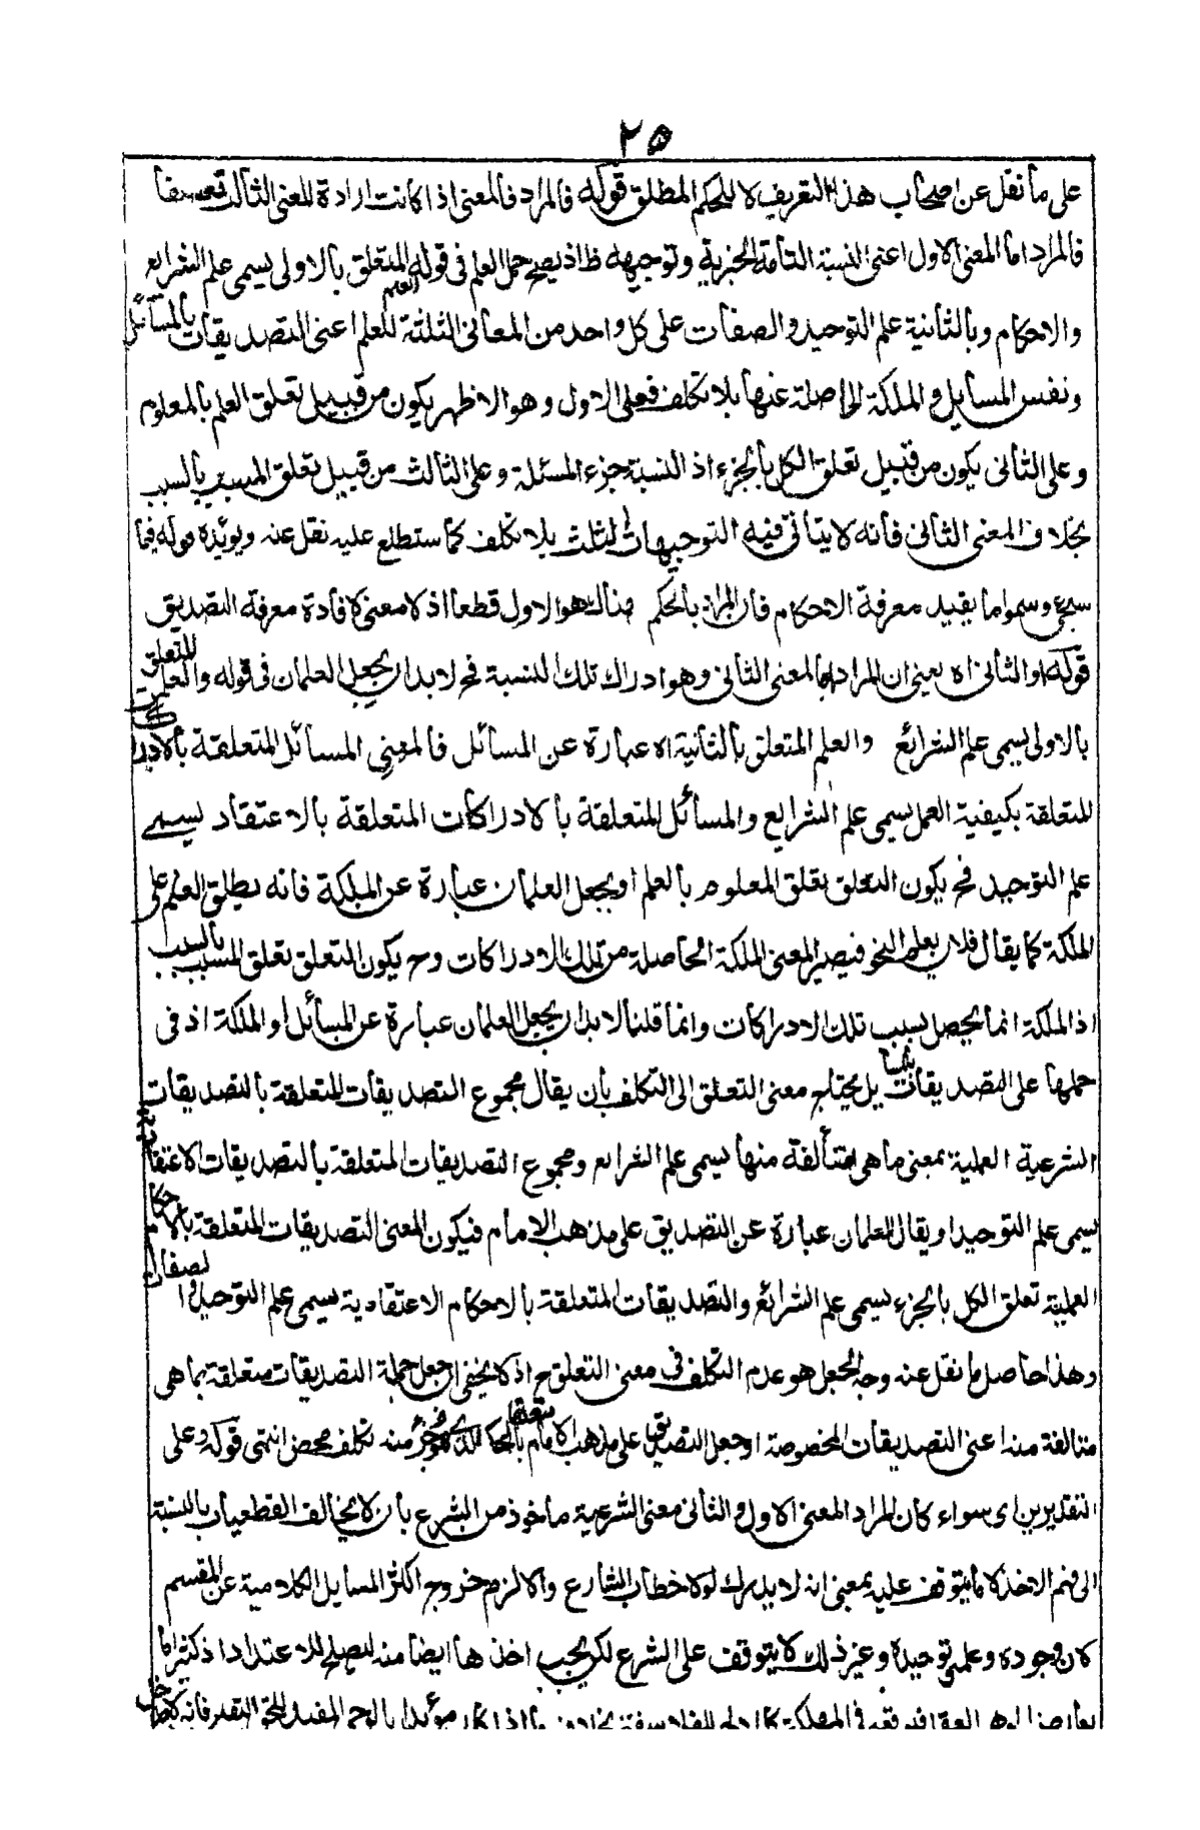 ٢٥
على ما نقل عن اصحاب هذا التعريف لا للحكم المطلق قوله فالمراد فالمعنى اذا كانت ارادة المعنى الثالث تعسفا
فالمراد اما المعنى الاول اعنى النسبة التامة الخبرية وتوجيهه ظ اذ يصح حمل العلم فى قوله العلم المتعلق بالاولى يسمى علم الشرايع
والاحكام وبالثانية علم التوحيد والصفات على كل واحد من المعانى الثلثة للعلم اعنى التصديقات بالمسائل
ونفس المسايل والملكة الحاصلة عنها بلا تكلف فعلى الاول وهو الاظهر يكون من قبيل تعلق العلم بالمعلوم
وعلى الثانى يكون من قبيل تعلق الكل بالجزء اذ النسبة جزء المسئلة وعلى الثالث من قبيل تعلق المسبب بالسبب
بخلاف المعنى الثانى فانه لا يتأتى فيه التوجيهات الثلث بلا تكلف كما ستطلع عليه نقل عنه ويؤيده قوله فيما
سيجئ وسموا ما يفيد معرفة الاحكام فان المراد بالحكم هناك هو الاول قطعا اذ لا معنى لافادة معرفة التصديق
قوله او الثانى اه يعنى ان المراد اما المعنى الثانى وهو ادراك تلك النسبة فح لا بد ان يجعل العلمان فى قوله والعلم المتعلق
بالاولى يسمى علم الشرائع والعلم المتعلق بالثانية اه عبارة عن المسائل فالمعنى المسائل المتعلقة بالادراكات
المتعلقة بكيفية العمل يسمى علم الشرايع والمسائل المتعلقة بالادراكات المتعلقة بالاعتقاد يسمى
علم التوحيد فح يكون التعلق تعلق المعلوم بالعلم او يجعل العلمان عبارة عن الملكة فانه يطلق العلم على
الملكة كما يقال فلان يعلم النحو فيصير المعنى الملكة الحاصلة من تلك الادراكات وح يكون التعلق تعلق المسبب بالسبب
اذ الملكة انما يحصل بسبب تلك الادراكات وانما قلنا لا بد ان يجعل العلمان عبارة عن المسائل او الملكة اذ فى
حملها على التصديقات بالمسايل يحتاج معنى التعلق الى التكلف بان يقال مجموع التصديقات المتعلقة بالتصديقات
الشرعية العملية بمعنى ما هى متألفة منها يسمى علم الشرايع ومجموع التصديقات المتعلقة بالتصديقات الاعتقادية
يسمى علم التوحيد او يقال العلمان عبارة عن التصديق على مذهب الامام فيكون المعنى التصديقات المتعلقة بالاحكام
العملية تعلق الكل بالجزء يسمى علم الشرائع والتصديقات المتعلقة بالاحكام الاعتقادية يسمى علم التوحيد والصفات
وهذا حاصل ما نقل عنه وجه الجعل هو عدم التكلف فى معنى التعلق ح اذ لا يخفى ان جعل جملة التصديقات متعلقة بما هى
متالفة منه اعنى التصديقات المخصوصة او جعل التصديق على مذهب الامام متعلقا بالحكم الذى هو جزء منه تكلف محض انتهى قوله وعلى
التقديرين اى سواء كان المراد المعنى الاول او الثانى معنى الشرعية ما يؤخذ من الشرع بان لا يخالف القطعيات بالنسبة
الى فهم الاخذ لا ما يتوقف عليه بمعنى انه لا يدرك لولا خطاب الشارع والا لزم خروج اكثر المسايل الكلامية عن المقسم
كان وجوده وعلمه وتوحيده وغير ذلك لا يتوقف على الشرع لكن يجب اخذها ايضا منه ليصلح للاعتداد اذ كثيرا ما